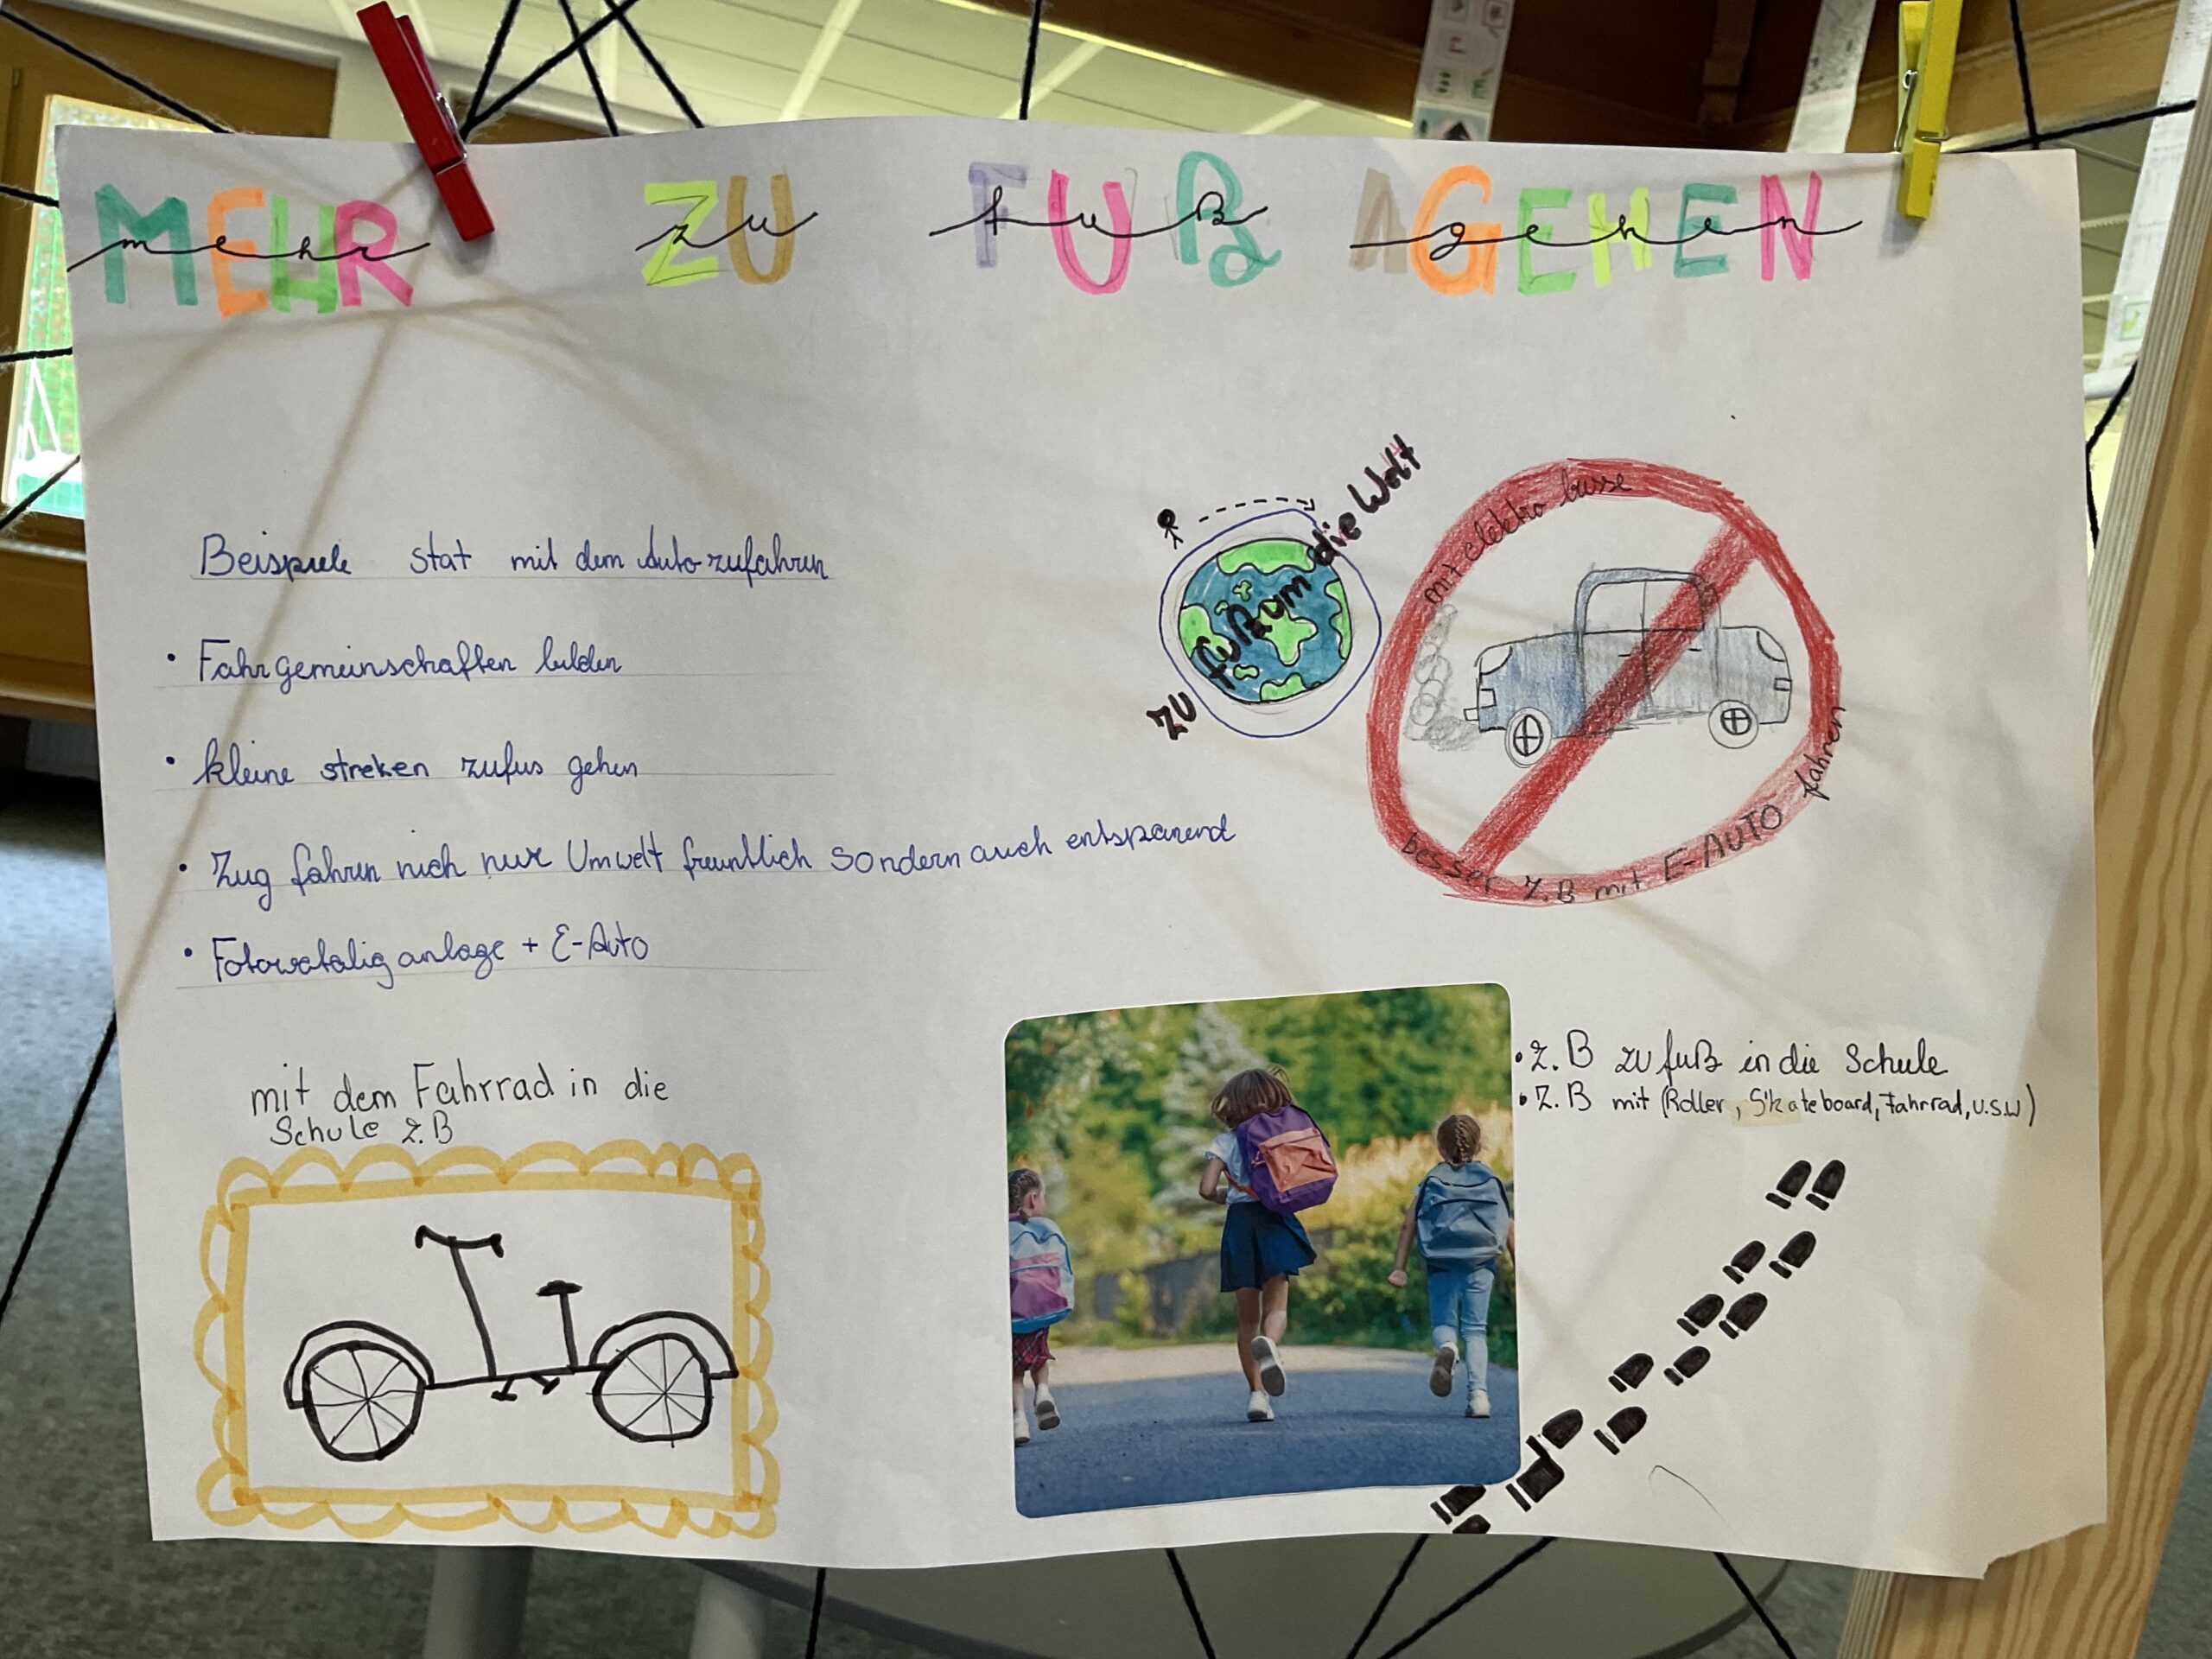 MEHR ZU FUß GEHEN
mehr zu fuß gehen
Beispiele stat mit dem Auto zufahren
• Fahrgemeinschaften bilden
• kleine streken zufus gehen
• Zug fahren nich nur Umwelt freuntlich sondern auch entspanend
• Fotowatalig anlage + E-Auto
zu fuß um die Welt
mit elektro busse
besser z.B mit E-AUTO fahren
mit dem Fahrrad in die
Schule z.B
• z.B zu fuß in die Schule
• Z.B mit (Roller, Skateboard, Fahrrad, u.s.w)